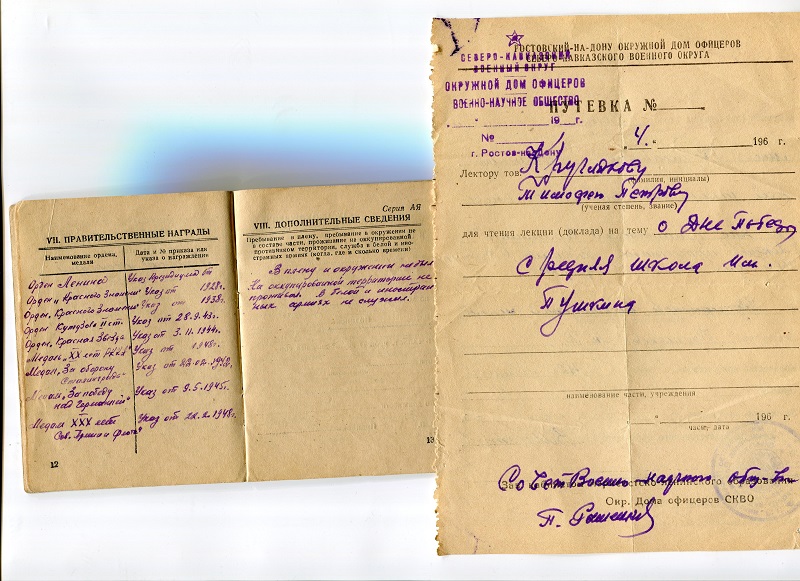 VII. ПРАВИТЕЛЬСТВЕННЫЕ НАГРАДЫ
Наименование ордена, медали
Дата и № приказа или указа о награждении
Орден Ленина Указ Президиума от
Орден "Красного Знамени" Указ от 1928г.
Орден "Красного Знамени" Указ от 1938г.
Орден Кутузова II ст. Указ от 28.9.43г.
Орден "Красная Звезда" Указ от 3.11.1944г.
Медаль "XX лет РККА" Указ от 1948г.
Медаль "За оборону Сталинграда" Указ от 22.02.
Медаль "За победу над Германией" Указ от 9.5.1945г.
Медаль XXX лет Сов. Армии и Флота Указ от 22.2.1948г.
12
Серия АЯ
VIII. ДОПОЛНИТЕЛЬНЫЕ СВЕДЕНИЯ
Пребывание в плену, пребывание в окружении не
в составе части, проживание на оккупированной
противником территории, служба в белой и ино-
странных армиях (когда, где и сколько времени)
В плену и окружении не был
На оккупированной территории не
проживал. В белой и иностран-
ных армиях не служил.
13
РОСТОВСКИЙ-НА-ДОНУ ОКРУЖНОЙ ДОМ ОФИЦЕРОВ
СЕВЕРО-КАВКАЗСКОГО ВОЕННОГО ОКРУГА
СЕВЕРО-КАВКАЗСКИЙ
ВОЕННЫЙ ОКРУГ
ОКРУЖНОЙ ДОМ ОФИЦЕРОВ
ВОЕННО-НАУЧНОЕ ОБЩЕСТВО
" " 19 г.
№
г. Ростов-на-Дону
ПУТЕВКА №
" 4. " 196 г.
Лектору тов. Круглякову
(фамилия, инициалы)
Тимофею Петровичу
(ученая степень, звание)
для чтения лекции (доклада) на тему о Дне Победы
Средняя школа им.
Пушкина
наименование части, учреждения
" " 196 г.
часы, дата
Совет Военно научного общ-ва
Окр. Дома офицеров СКВО
П.